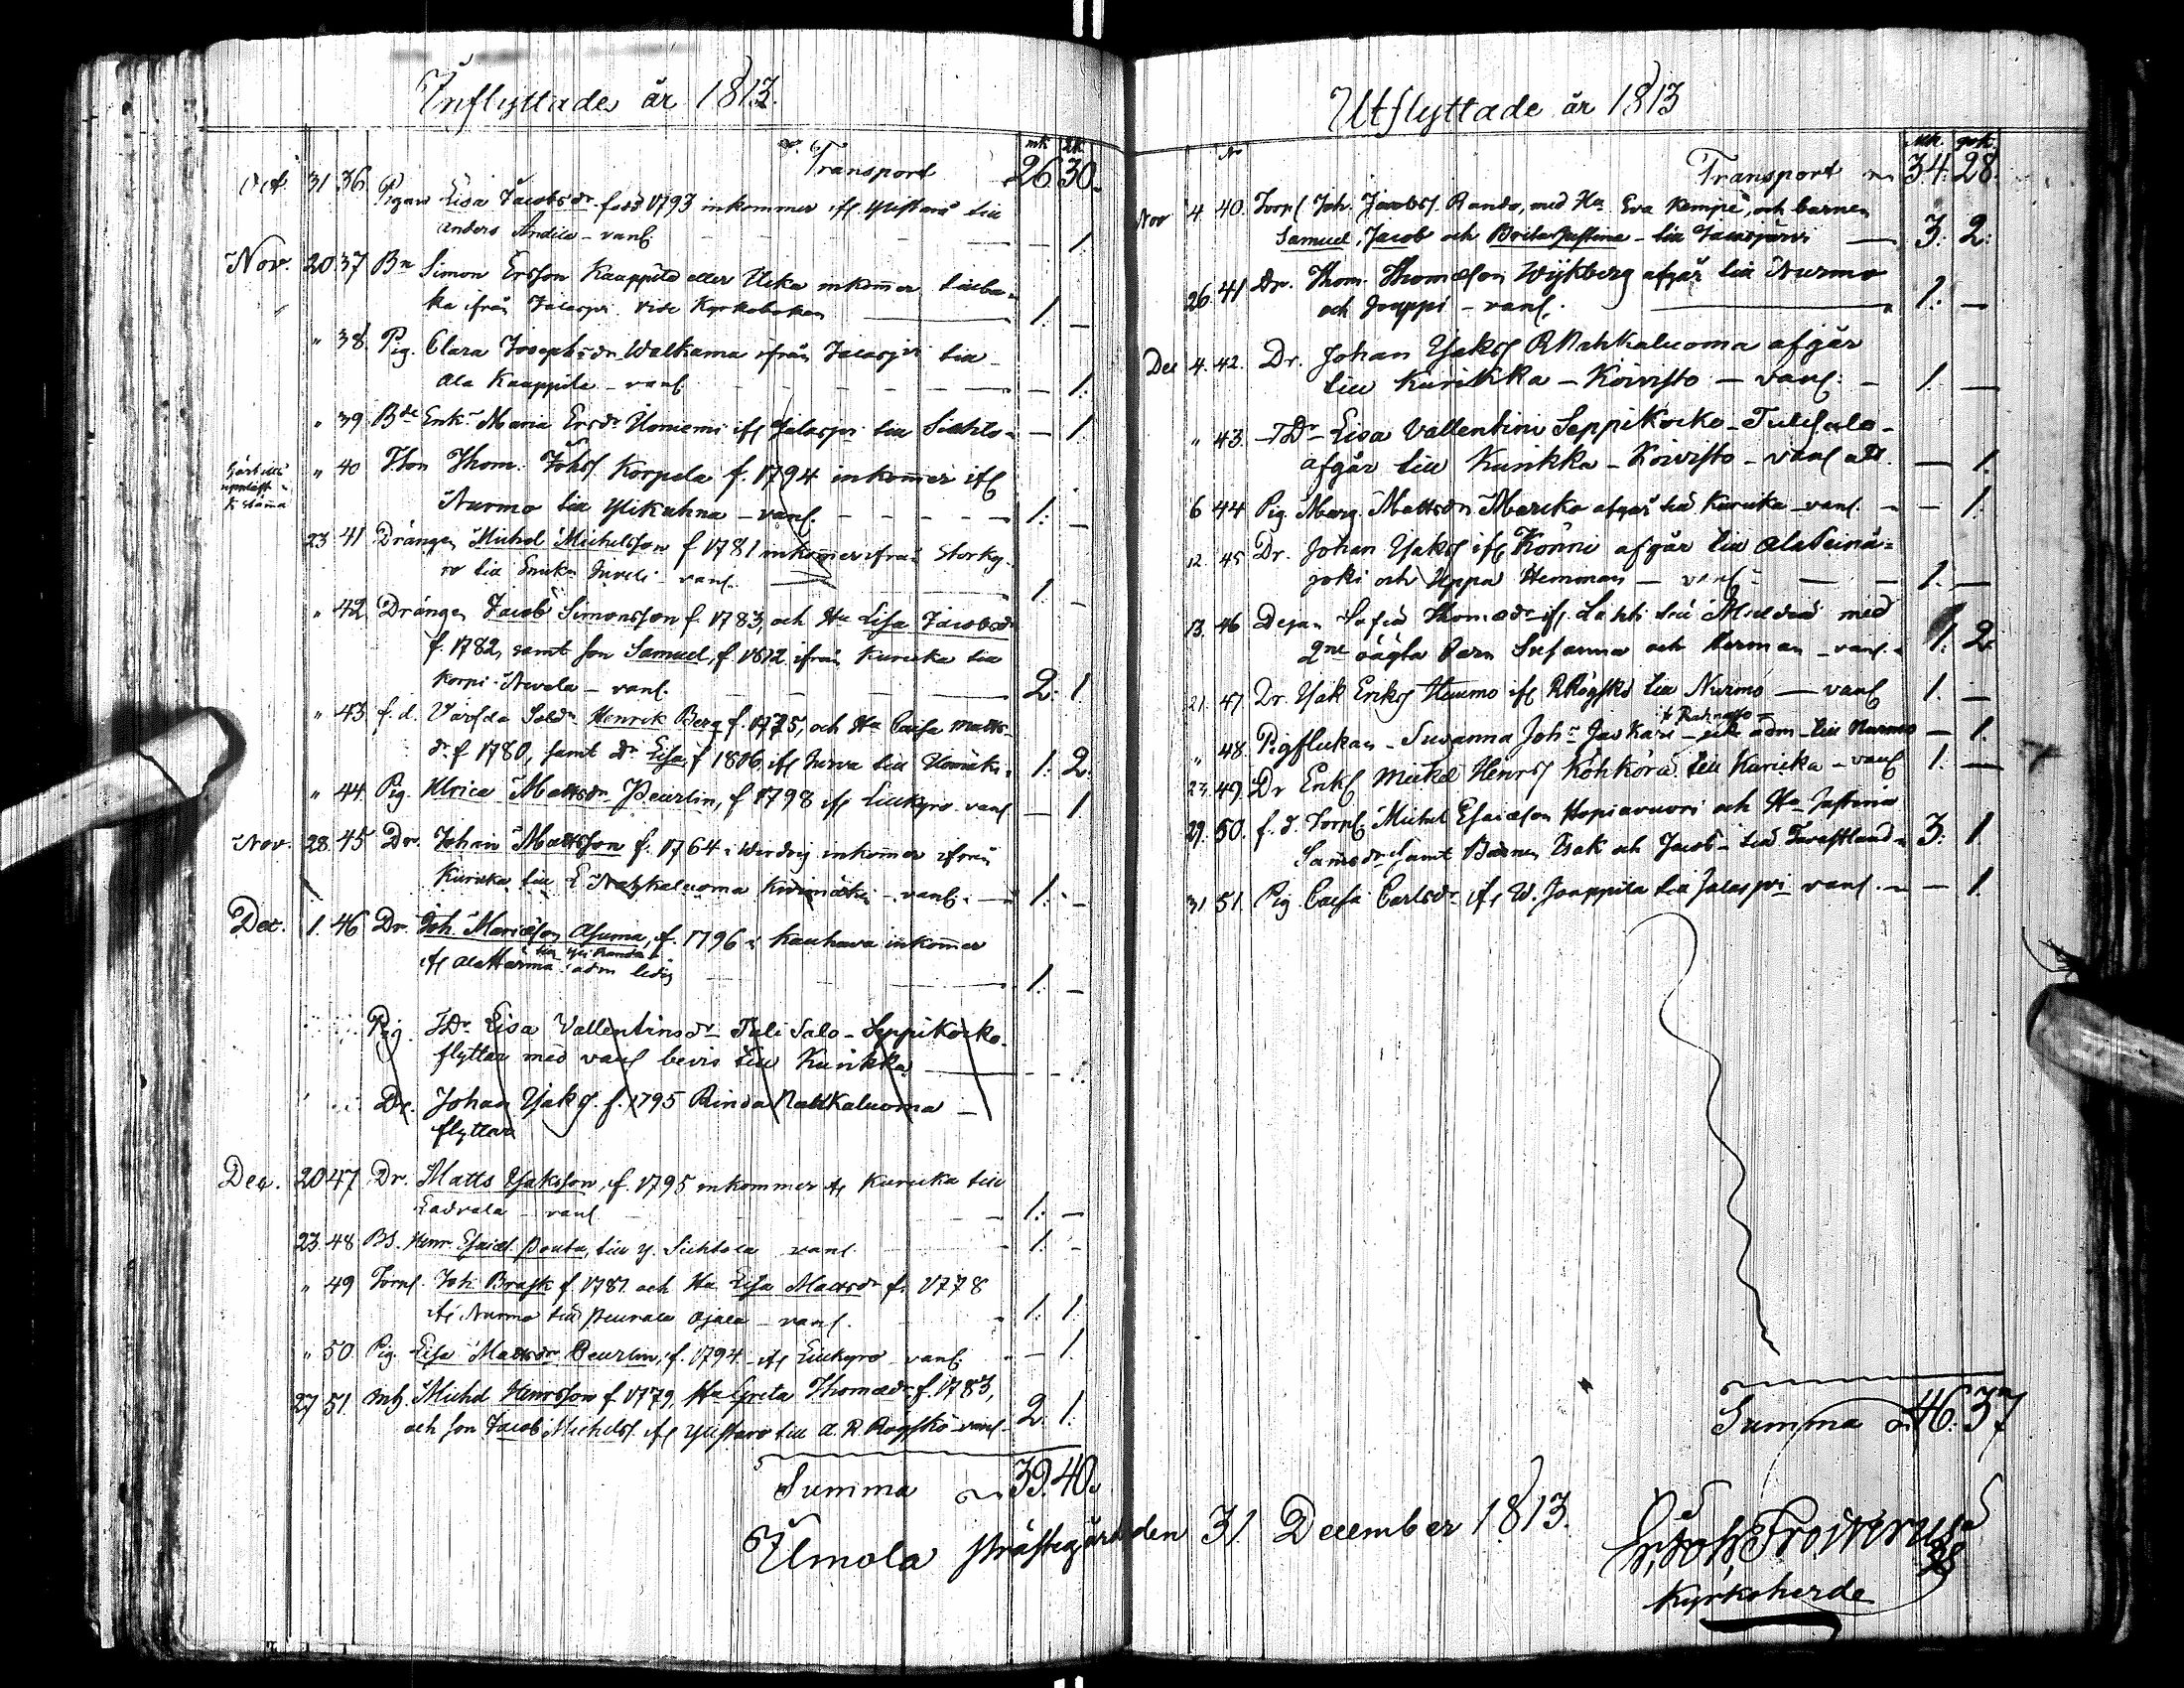 Inflyttade år 1813.
mk qk
Transport 26. 30.
Oct. 31. 36. Pigan Lisa Jacobsdr född 1793 inkommer ifr Ylistaro till
Anders Andila - vanl. - 1.
Nov. 20 37 Bn Simon Ersson Kaappila eller Ucka inkommer tillba-
ka ifrån Jalasjri vide Kyrkoboken 1. -
" 38. Pig. Clara Josephsdr Walkama ifrån Jalasjvi till
Ala Kaappila - vanl. - 1.
" 39 Bde Enk. Maria Ersdr Uoniemi ifr Jalasjvi till - 1.
" 40 Thom. Johss Korpela f. 1794 inkommer ifr
Nurmo till Ylikahna - vanl. 1. -
23 41 Drängen Michel Michelsson f 1781 inkommer ifrån Storky-
ro till vanl. 1. -
" 42 Drängen Jacob Simonsson f. 1783, och Hu Lisa Jacobsdr
f. 1782, samt son Samuel, f. 1812 ifrån Kuricka till
Korpi-Nevala - vanl. 2. 1.
" 43. f. d. Soldn Henrik Berg f. 1775, och Hu Caisa Matts-
dr f 1780, samt dr Lisa f 1806, ifr Jurva till 1. 2.
" 44. Pig. Ulrica Mattsdr Peurlin, f 1798 ifr Lillkyro vanl. - 1
Nov. 28. 45 Dr. Johan Mattsson f. 1764 inkommer ifrån
Kuricka till Nahkaluoma - vanl. 1. -
Dec. 1. 46 Dr. Joh. Mariæson Asuma, f. 1796 i Kauhava inkommer
till Yli Randa
ifr Alahärmä adm ledig 1. -
Pig. TDr Lisa Vallentinsdr Tulisalo - Seppikocko
flyttar med vanl bevis till Kurikka
Dr. Johan Ysaks f. 1795 Rinda Nahkaluoma -
flyttar
Dec. 20 47 Dr. Matts Ysaksson, f. 1795 inkommer ifr Kuricka till
Ladvala - vanl 1. -
23. 48. BS. Henr. Esaiæs. Pouta, till Y. Sihtola vanl. 1. -
" 49 Joh. Brask f. 1781 och Hu Lisa Mattsdr f. 1778
ifr Nurmo till Peurala Ojala - vanl. 1. 1.
" 50. Pig. Lisa Mattsdr Peurlin, f. 1794 - ifr Lillkyro - vanl. - 1.
27 51. Michel Henrsson f 1779, Hu Greta Thomædr f. 1783,
och son Jacob Michelss. ifr Ylistaro till A. R. Rögskö vanl. 2. 1.
Summa 39. 40.
Ilmola Prästegård den 31 December 1813.
Utflyttade år 1813
No mk. qvk.
Transport 34. 28.
Nov 4. 40. Torp Joh. Jacobss. Rando, med Hu Eva Kempe, och barnen
Samuel, Jacob och Brita Justina - till Jalasjärvi 3. 2.
26. 41 Dr. Thom. Thomæson Wijkberg afgår till Nurmo
och Jouppi - vanl. 1. -
Dec 4. 42. Dr. Johan Ysakss R Nahkaluoma afgår
till Kurikka - Koivisto - vanl. 1. -
" 43. TDr Lisa Vallentini Seppikocko - Tulisalo -
afgår till Kurikka - Koivisto - vanl att. - 1.
6 44 Pig Marg. Mattsdr Marcko afgår till Kuricka - vanl. - 1.
12. 45 Dr. Johan Ysakss ifr Könni afgår till Ala Seinä-
joki och Uppa Hemman - vanl 1. -
13. 46 Dejan Sofia Thomædr ifr Lahti till med
2ne oägta Barn Susanna och Herman - vanl. 1. 2.
21. 47. Dr. Ysak Erikss Huumo ifr R Rögskö till Nurmo - vanl 1. -
" 48. Pigflickan - Susanna Johs Jaskari - icke adm - till Nurmo - 1.
23. 49. Dr Enkl Mickel Henrss Köhkörä till Kuricka - vanl 1. -
29. 50. f. d. Torp. Michel Esaiæson Hopiavuori och Hu Justina
Samsdr samt Barnen Isak och Jacob - till Tavastland 3. 1.
31. 51. Pig Caisa Carlsdr ifr W. Jouppila till Jalasjvi vanl. - 1.
Summa 46. 37
Kyrkoherde